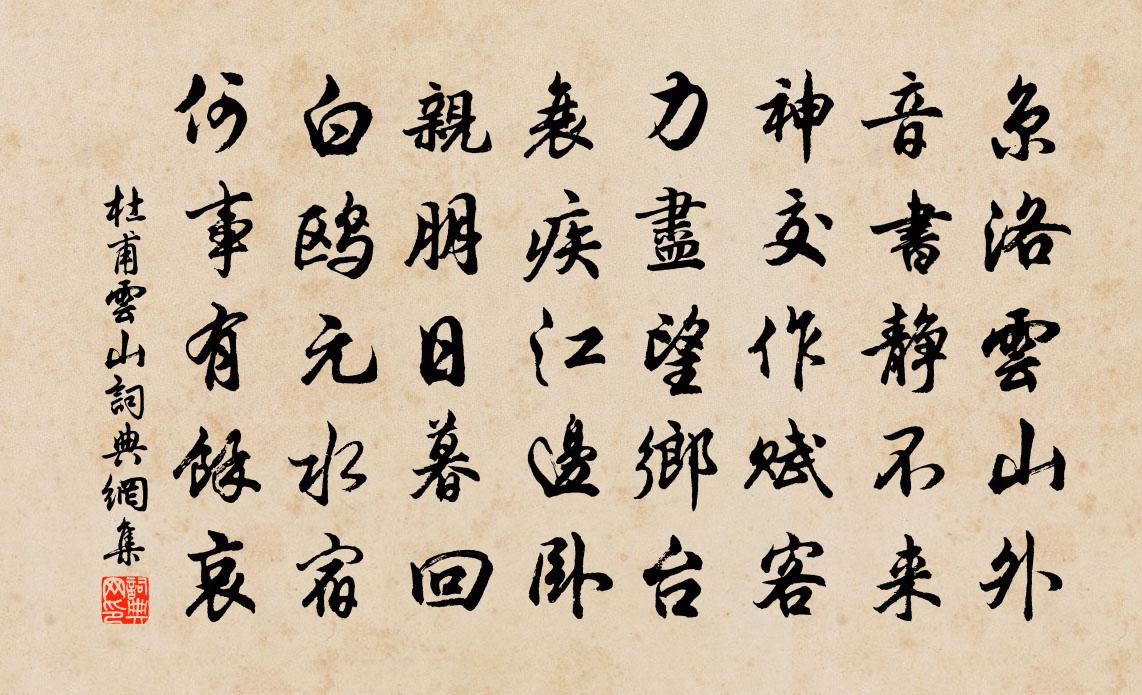 京洛雲山外
音書静不来
神交作赋客
力盡望鄉台
衰疾江邊卧
親朋日暮回
白鸥元水宿
何事有餘哀
杜甫雲山詞典網集
詞典網印